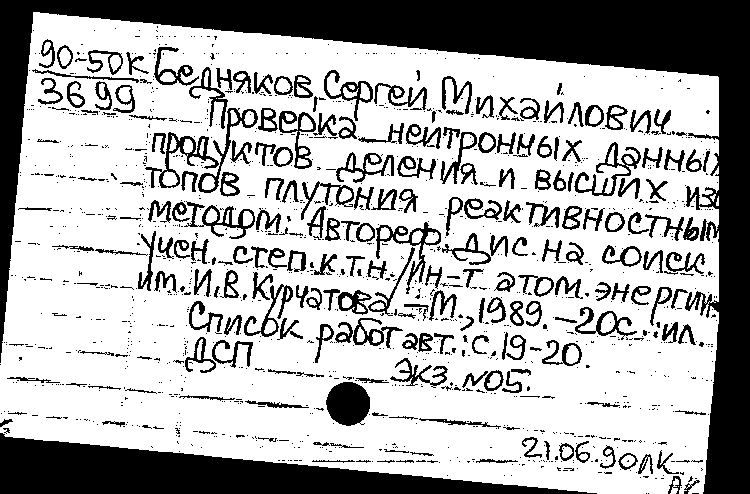 90-50К
3699
Бедняков, Сергей Михайлович
Проверка нейтронных данных
продуктов деления и высших изо
топов плутония реактивностным
методом: Автореф. дис. на соиск.
учен. степ. к.т.н. /Ин-т атом. энергии
им. И.В. Курчатова. – М., 1989. – 20с.: ил.
Список работ авт.: с. 19-20.
ДСП Экз. №05.
21.06.90ЛК
АК